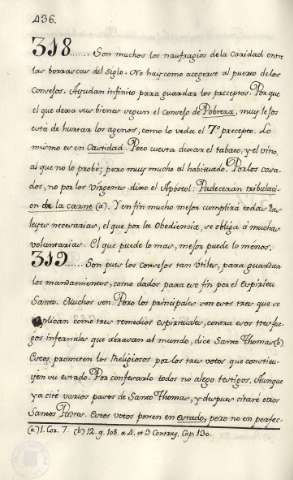 436.
318...... Son muchos los naufragios de la Caridad entre
las borrascas del siglo. No hay como acogerse al puerto de los
Consejos. Ayudan infinito para guardar los preceptos. Porque
el que dexa sus bienes segun el Consejo de Pobreza, muy lexos
está de hurtar los agenos, como lo veda el 7º precepto. Lo
mismo es en Castidad. Poco cuesta dexar el tabaco, y el vino,
al que no lo probó; pero mucho al habituado. Por los casa-
dos, no por los Virgenes dixo el Apóstol: Padeceran tribulaci-
on de la carne (a). Y en fin mucho mejor cumplirá todas las
leyes necesarias, el que por la Obediencia, se obliga á muchas
voluntarias. El que puede lo mas, mejor puede lo menos.
319...... Son pues los consejos tan útiles, para guardar
los mandamientos, como dados para ese fin por el Espiritu
Santo. Muchos son. Pero los principales son esos tres que se
aplican como tres remedios espirituales, contra esos tres fue-
gos infernales que abrasan al mundo, dice Santo Thomas (b)
Estos prometen los Religiosos por los tres votos que constitu-
yen su estado. Por confesarlo todos no alego testigos. Aunque
ya cité varios pasos de Santo Thomas, y despues citaré otros
Santos Padres. Estos votos ponen en estado, pero no en perfec-
(a) 1. Cor. 7. (b) 2. q. 108. a. 4. et 3 Contrag. Cap. 130.